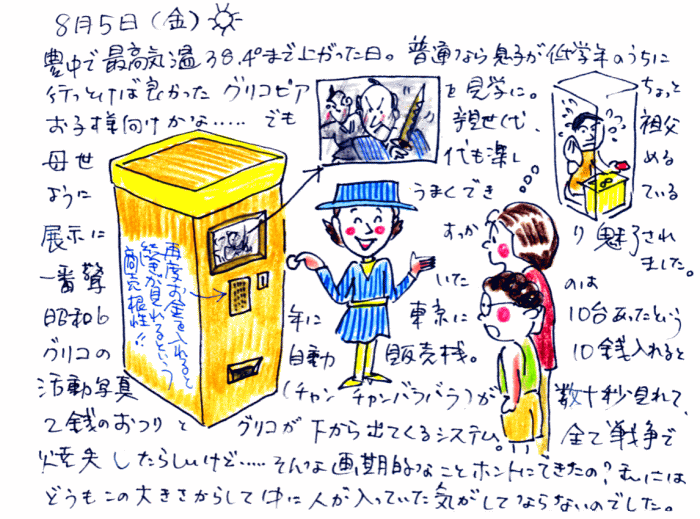 8月5日(金)
豊中で最高気温38.4°まで上がった日。普通なら息子が低学年のうちに
行っとけば良かったグリコピア を見学に。 ちょっと
お子様向けかな..... でも 親世代、 祖父
母世 代も楽し める
ように うまくでき ている
展示に すっか り魅了され
一番驚 いた ました。 のは
昭和6 年に 東京に 10台あったという
グリコの 自動 販売機。 10銭入れると
活動写真 (チャンチャンバラバラ)が 数十秒見れて、
2銭のおつりと グリコが下から出てくるシステム。 全て戦争で
焼失したらしいけど.....そんな画期的なことホントにできたの?私には
どうもこの大きさからして中に人が入っていた気がしてならないのでした。
再度お金を入れると
続きが見れるという
商売根性!!